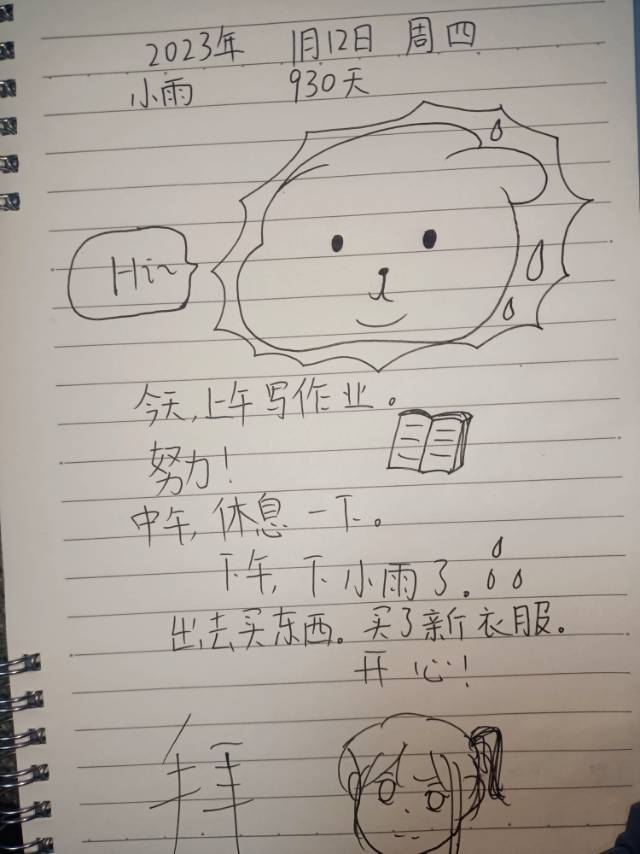 2023年 1月12日 周四
小雨 930天
Hi~
今天,上午写作业。
努力!
中午,休息一下。
下午,下小雨了.
出去买东西。买了新衣服。
开心!
拜